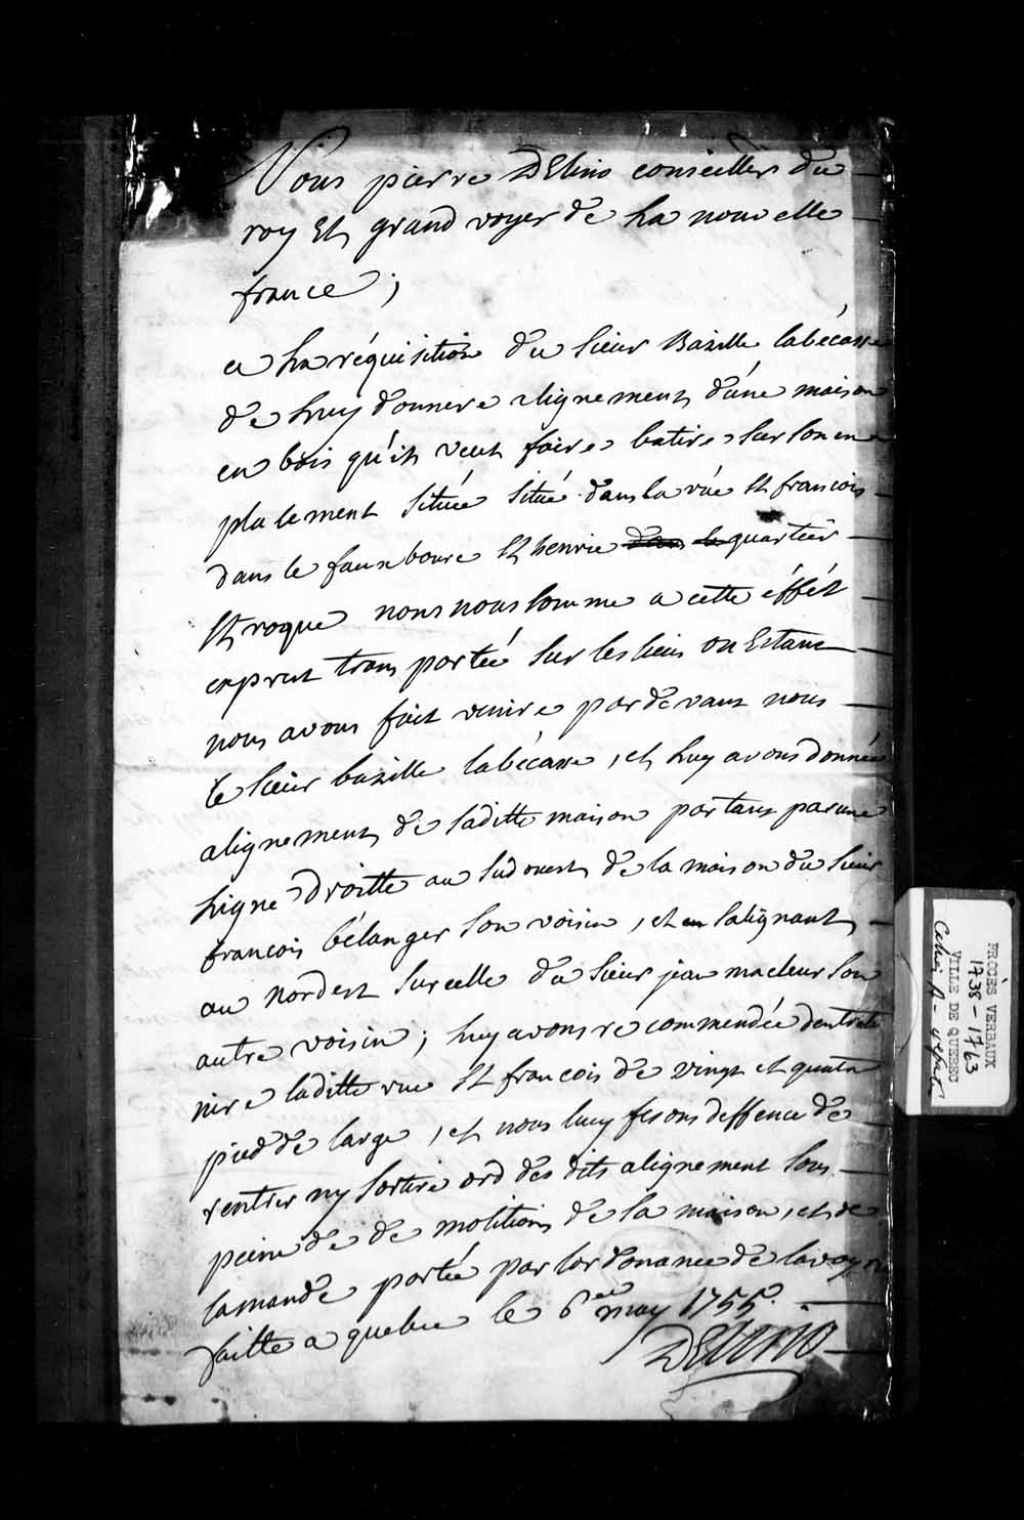 Nous pierre DElino conseiller du
roy Et grand voyer de La nouvelle
france ;
a La réquisition du sieur Bazille labécasse
de Luy donnere alignement d'une maison
en bois qu'il veut faire batire sur son em
placement située situé dans la rüe St françois
dans le fauxbourc St henrie dans le quartier
St roque nous nous somme a cette éffét
exprest transportée sur les lieux ou Estant
nous avons fait venire pardevant nous
le sieur bazille labécasse , et Luy avons donnée
alignement de laditte maison partant par une
Ligne droitte au sud ouest de la maison du sieur
francois bélanger son voisin , et en salignant
au nordest sur celle du sieur jean macleur son
autre voisin ; Luy avons récommendée dentrete
nire laditte rue St francois de vingt et quatre
pied de large , et nous luy fesons deffence de
rentrer ny sortire ord des dits alignement sous
peine de de molition de la maison , et de
lamande portée par lordonance de lavoyri
faitte a quebec le 6eme may 1755.
DElino
PROCÈS VERBAUX
1738-1763
VILLE DE QUEBEC
Cahier A-